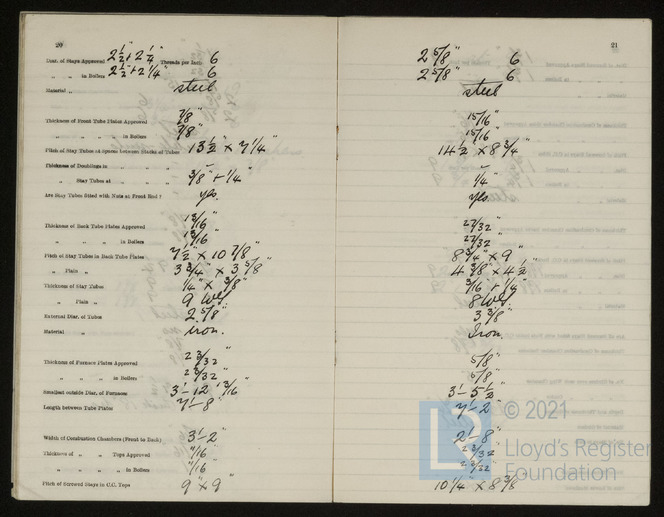 20
Diar. of Stays Approved 2 1/2" + 2 1/4" Threads per Inch 6
„ „ in Boilers 2 1/2" + 2 1/4" 6
Material „ steel
Thickness of Front Tube Plates Approved 7/8"
„ „ „ „ in Boilers 7/8"
Pitch of Stay Tubes at Spaces between Stacks of Tubes 13 1/2" × 7 1/4"
Thickness of Doublings in „ „ „ –
„ Stay Tubes at „ „ „ 3/8" + 1/4"
Are Stay Tubes fitted with Nuts at Front End ? yes.
Thickness of Back Tube Plates Approved 13/16"
„ „ „ „ in Boilers 13/16"
Pitch of Stay Tubes in Back Tube Plates 7 1/2" × 10 7/8"
„ Plain „ 3 3/4" × 3 5/8"
Thickness of Stay Tubes 1/4" × 3/8"
„ Plain „ 9 WG.
External Diar. of Tubes 2 5/8"
Material „ iron.
Thickness of Furnace Plates Approved 23/32"
„ „ „ „ in Boilers 23/32"
Smallest outside Diar. of Furnaces 3'-12 3/16"
Length between Tube Plates 7'-8"
Width of Combustion Chambers (Front to Back) 3'-2"
Thickness of „ „ Tops Approved 11/16"
„ „ „ „ in Boilers 11/16"
Pitch of Screwed Stays in C.C. Tops 9" × 9"
21
2 5/8" 6
2 5/8" 6
steel
15/16"
15/16"
14 1/2" × 8 3/4"
–
1/4"
yes.
27/32"
27/32"
8 3/4" × 9"
4 3/8" × 4 1/2"
3/16" + 1/4"
8 WG.
3 3/8"
Iron.
5/8"
5/8"
3'-5 1/2"
7'-2"
2'-8"
23/32"
23/32"
10 1/4" × 8 3/8"
© 2021
Lloyd's Register
Foundation